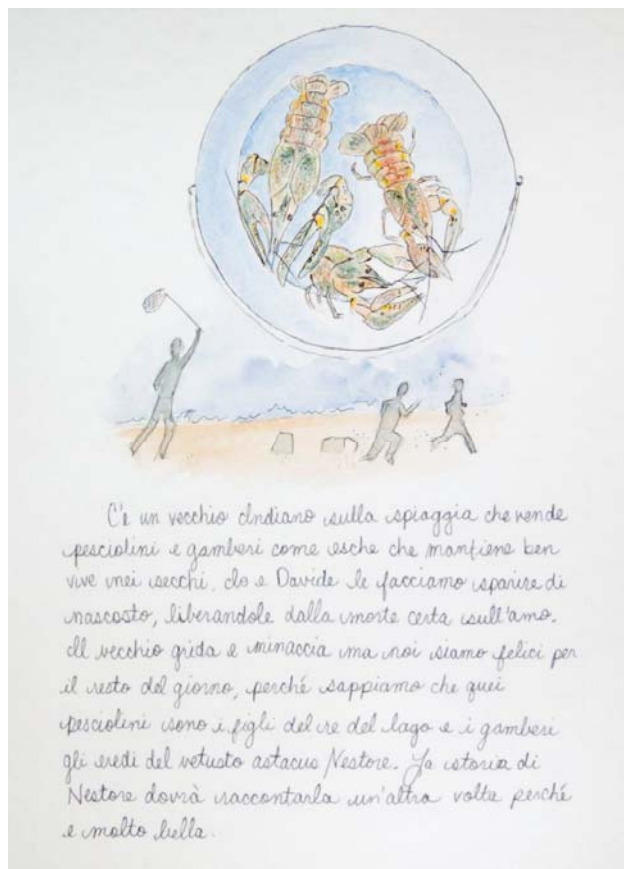 C'è un vecchio Indiano sulla spiaggia che vende
pesciolini e gamberi come esche che mantiene ben
vive nei secchi. Io e Davide le facciamo sparire di
nascosto, liberandole dalla morte certa sull'amo.
Il vecchio grida e minaccia ma noi siamo felici per
il resto del giorno, perché sappiamo che quei
pesciolini sono i figli del re del lago e i gamberi
gli eredi del vetusto astacus Nestore. La storia di
Nestore dovrà raccontarla un'altra volta perché
è molto bella.